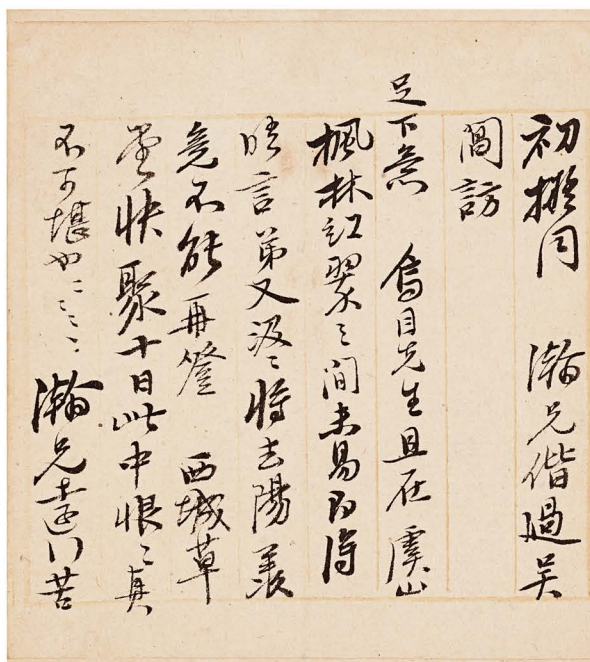 初擬同 瀚兄偕過吴
閶訪
足下齋 烏目先生且在虞山
楓林紅翠之間未易即得
晤言弟又汲汲将去陽羡
竟不能再登 西城草
堂快聚十日此中恨恨真
不可堪也
瀚兄遠行苦